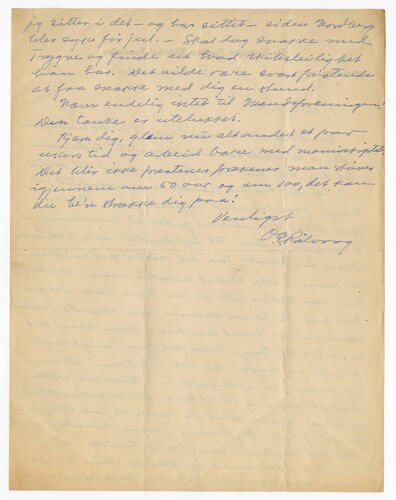 jeg sitter i det – og har sittet – siden Nordberg
blev syk før jul. – Skal dag snakke med
Trygve og finde ut hvad leiligheit
han har. Det vilde være svært fristende
at faa snakke med dig en stund.
Navn endelig intet til Mandsforeningen!
Den tanke er utelukket.
Kjøm dig, glem nu alt andet et par
ukers tid og arbeid bare med manuskriptet.
Det blir ikke presternes man
igjennem om 50 aar og om 100, det kan
du be'n strække dig paa!
Venligst
O. E. Rölvaag